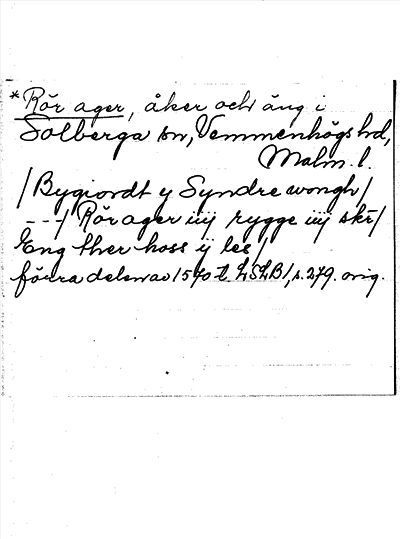 *Rör ager, åker och äng i
Solberga sn, Vemmenhögs hd,
Malm. l.
/ Bygiordt y Syndre wongh /
---/ Rörager iiij rygge iiij skr/
Eng ther hoss ij les /
förra delen av 1570 t. LSLB1, s. 279. orig.